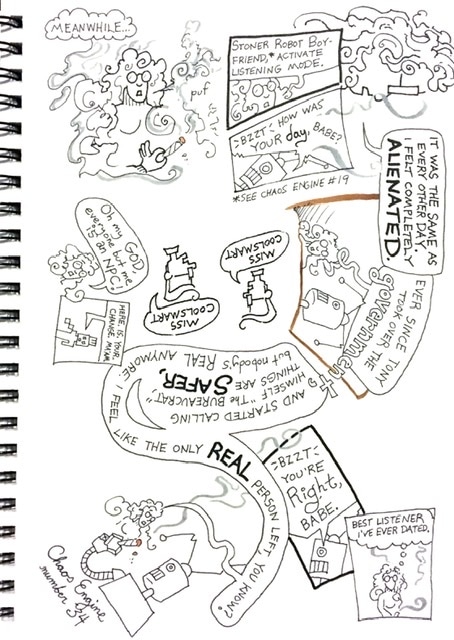 MEANWHILE...
puf
STONER ROBOT BOY-
FRIEND,* ACTIVATE
LISTENING MODE.
-BZZT- HOW WAS
YOUR day, BABE?
*SEE CHAOS ENGINE #19
IT WAS THE SAME AS
EVERY OTHER DAY.
I FELT COMPLETELY
ALIENATED.
EVER SINCE TONY
TOOK OVER THE
government
AND STARTED CALLING
HIMSELF "The BUREAUCRAT,"
THINGS ARE SAFER,
but nobody's REAL ANYMORE.
MISS
COOLSMART
MISS
COOLSMART
Oh my
GOD,
everyone but me
is an NPC!
HERE IS YOUR
CHANGE MA'AM
I FEEL LIKE THE ONLY REAL PERSON LEFT, YOU KNOW?
-BZZT-
YOU'RE
Right,
BABE.
BEST LISTENER
I'VE EVER DATED.
Chaos Engine
number 34